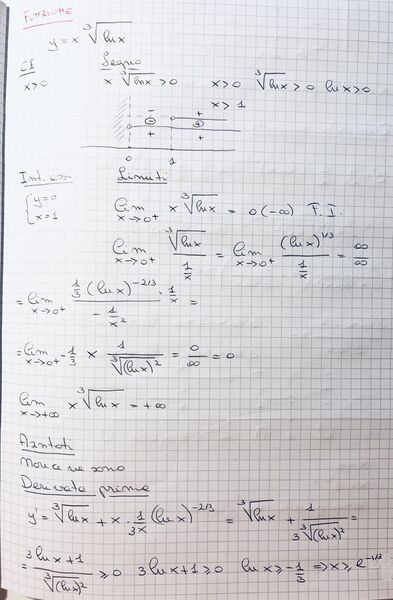 FUNZIONE
y = x ∛(ln x)
CE Segno
x>0 x ∛(ln x) > 0 x>0 ∛(ln x) > 0 ln x > 0
x > 1
- +
⊖ ⊕
+ +
0 1
Int. assi Limiti
{ y=0 x=1
lim x→0⁺ x ∛(ln x) = 0(-∞) F.I.
lim x→0⁺ ∛(ln x) / (1/x) = lim x→0⁺ (ln x)^(1/3) / (1/x) = ∞/∞
= lim x→0⁺ (1/3 (ln x)^(-2/3) · 1/x) / (-1/x²) =
= lim x→0⁺ -1/3 x 1/∛((ln x)²) = 0/∞ = 0
lim x→+∞ x ∛(ln x) = +∞
Asintoti
Non ce ne sono
Derivata prima
y' = ∛(ln x) + x · 1/(3x) (ln x)^(-2/3) = ∛(ln x) + 1/(3 ∛((ln x)²)) =
= (3 ln x + 1)/∛((ln x)²) ≥ 0 3 ln x + 1 ≥ 0 ln x ≥ -1/3 ⇒ x ≥ e^(-1/3)